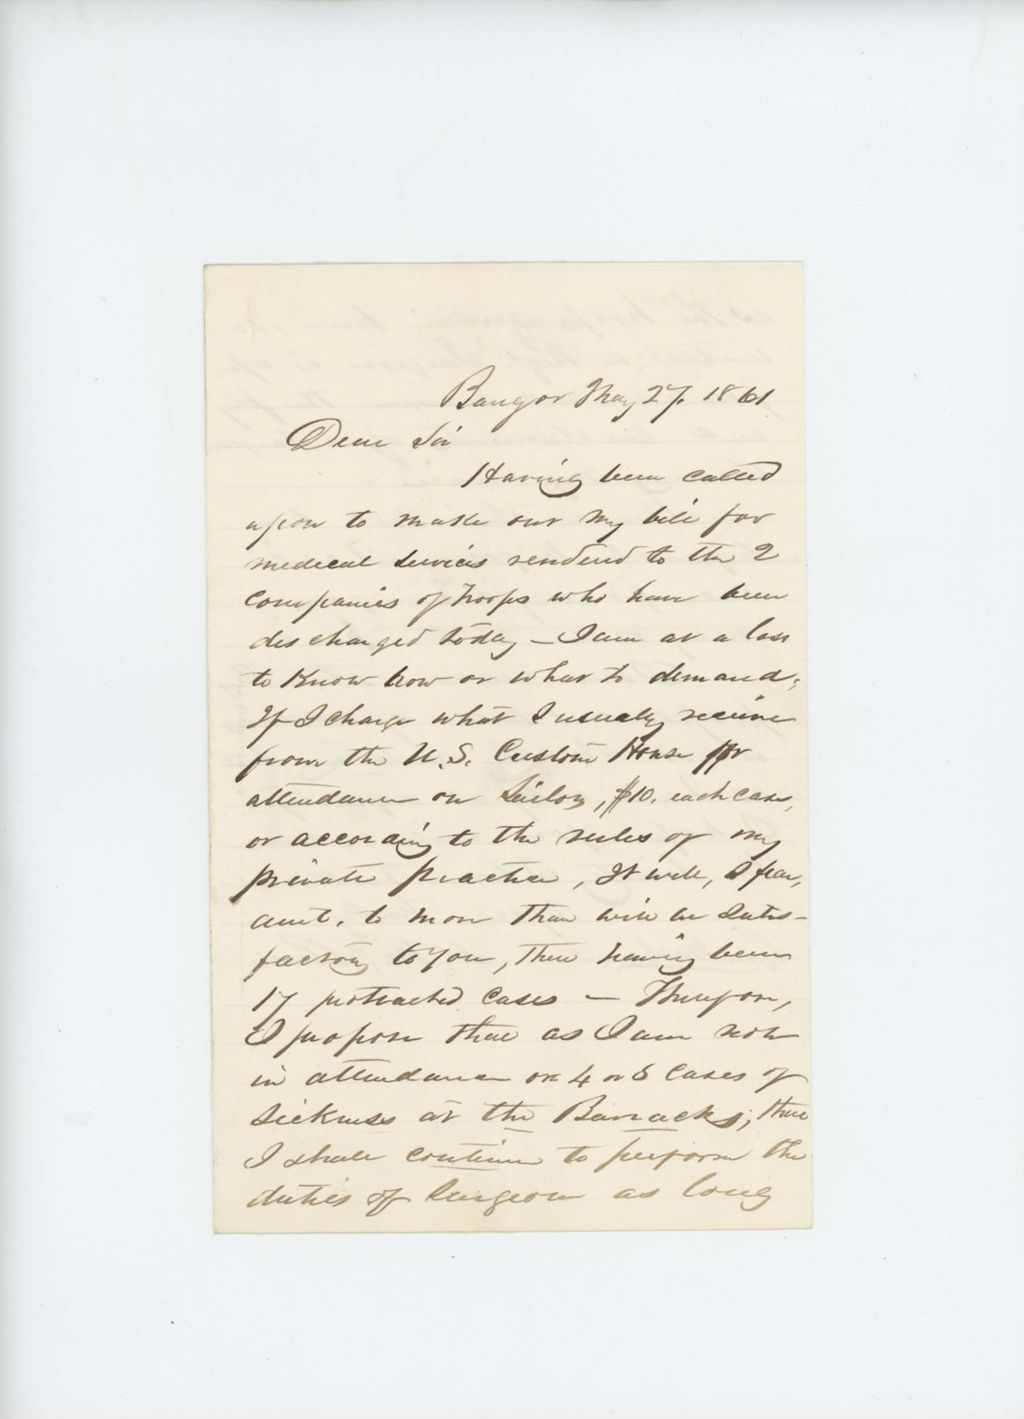 Bangor May 27. 1861
Dear Sir
Having been called
upon to make out my bill for
medical services rendered to the 2
companies of troops who have been
discharged today – I am at a loss
to know how or what to demand;
If I charge what I usually receive
from the U.S. Custom House for
attendance on Sailors, $10. each case,
or according to the rules of my
private practice, It will, I fear,
amt. to more than will be satis-
factory to you, there having been
17 protracted cases — Therefore,
I propose that as I am now
in attendance on 4 or 5 cases of
sickness at the Barracks, that
I shall continue to perform the
duties of Surgeon as long